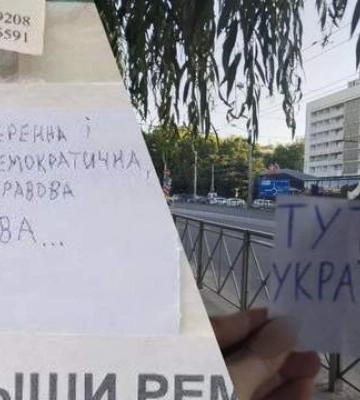 9208
5591
ЕРЕННА І
ЕМОКРАТИЧНА,
РАВОВА
ВА...
ЫШИ РЕМ
ТУТ
УКРА